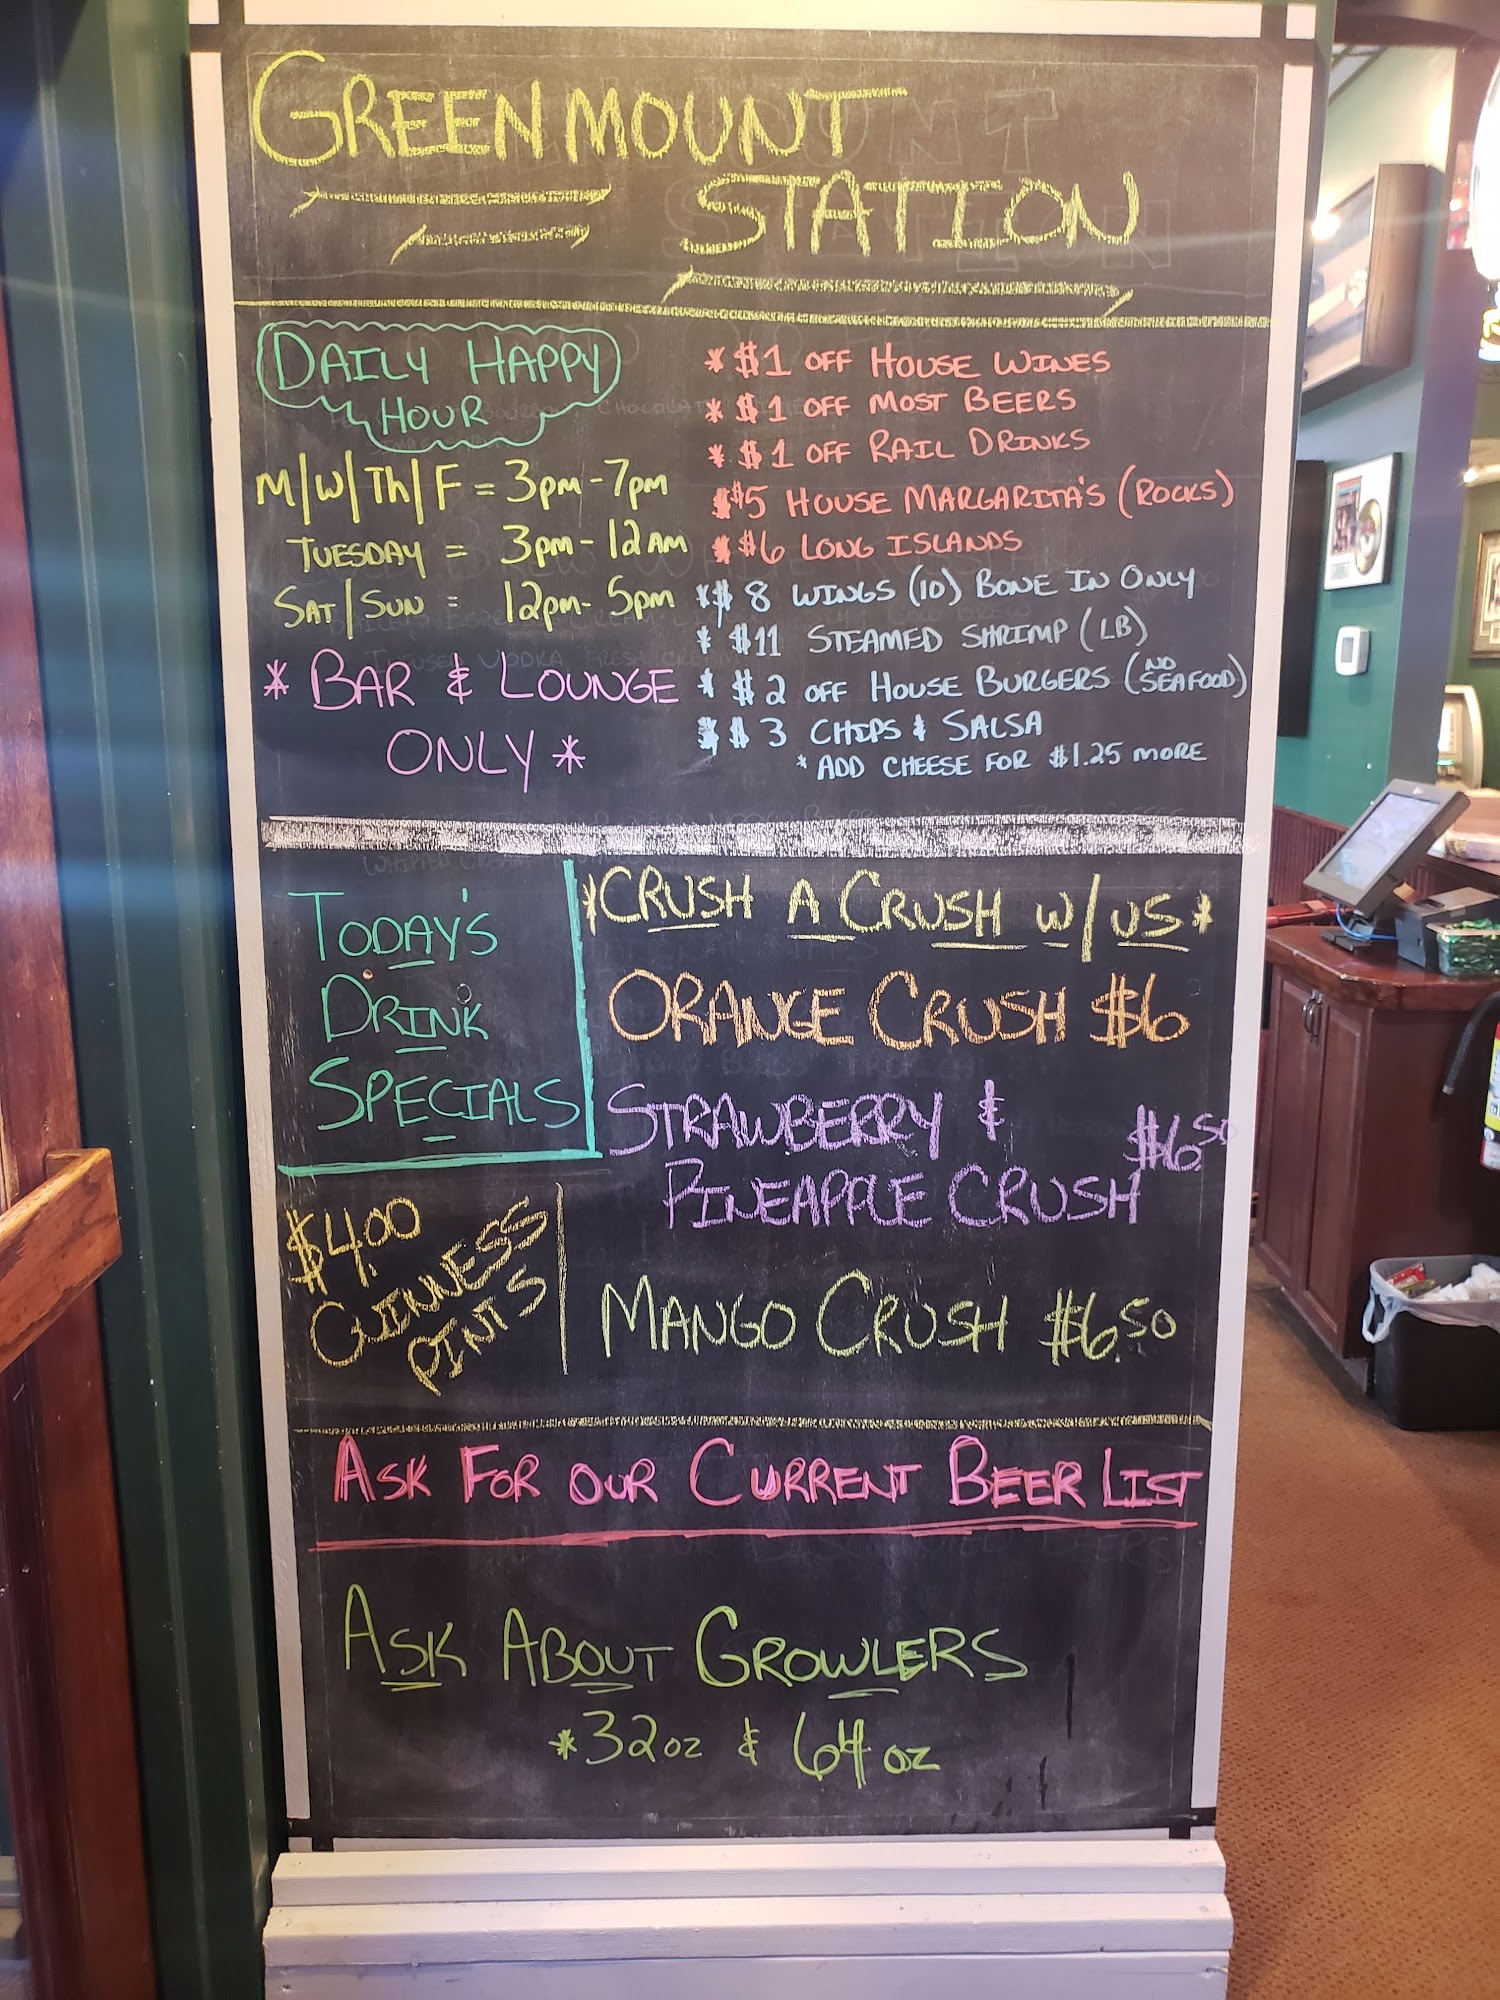 GREENMOUNT
STATION
DAILY HAPPY
HOUR
M/W/TH/F = 3PM-7PM
TUESDAY = 3PM-12AM
SAT/SUN = 12PM-5PM
* BAR & LOUNGE
ONLY *
* $1 OFF HOUSE WINES
* $1 OFF MOST BEERS
* $1 OFF RAIL DRINKS
* $5 HOUSE MARGARITA'S (ROCKS)
* $6 LONG ISLANDS
* $8 WINGS (10) BONE IN ONLY
* $11 STEAMED SHRIMP (LB)
* $2 OFF HOUSE BURGERS (NO SEAFOOD)
* $3 CHIPS & SALSA
* ADD CHEESE FOR $1.25 MORE
TODAY'S
DRINK
SPECIALS
$4.00
GUINNESS
PINTS
*CRUSH A CRUSH W/US*
ORANGE CRUSH $6
STRAWBERRY &
PINEAPPLE CRUSH $6.50
MANGO CRUSH $6.50
ASK FOR OUR CURRENT BEER LIST
ASK ABOUT GROWLERS
*32OZ & 64OZ